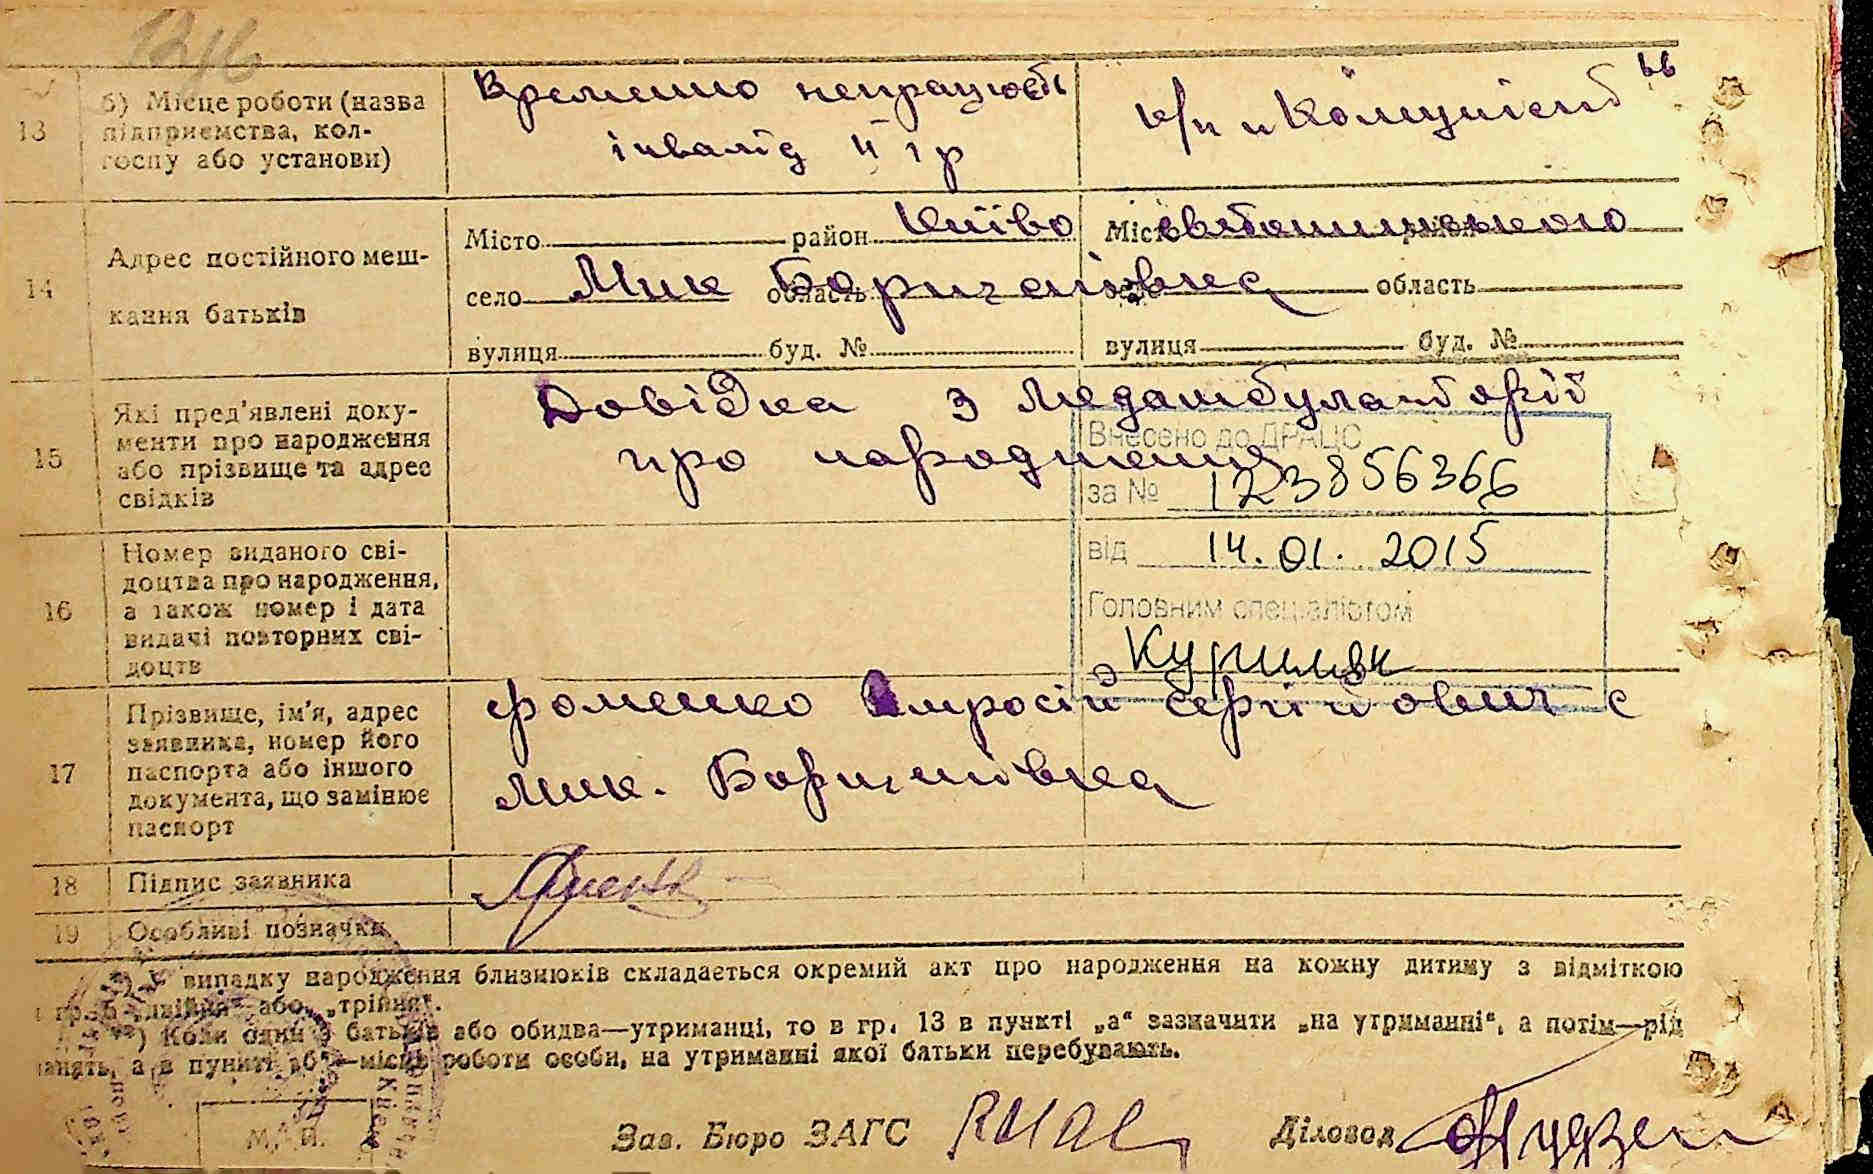 1216
13
б) Місце роботи (назва
підприємства, кол-
госпу або установи)
Временно непрацюєть
інвалід ІІ гр
к/п „Комуніст"
14
Адрес постійного меш-
кання батьків
Місто район Києво Місто Святошинського район
село Мик Борщагівка область село область
вулиця буд. № вулиця буд. №
15
Які пред'явлені доку-
менти про народження
або прізвище та адрес
свідків
Довідка з Медамбулаторії
про народження
Внесено до ДРАЦС
за № 123856366
від 14.01.2015
Головним спеціалістом
16
Номер виданого сві-
доцтва про народження,
а також номер і дата
видачі повторних сві-
доцтв
17
Прізвище, ім'я, адрес
заявника, номер його
паспорта або іншого
документа, що замінює
паспорт
Фоменко Амросій Сергійович с
Мик. Борщагівка
18 Підпис заявника
19 Особливі позначки
випадку народження близнюків складається окремий акт про народження на кожну дитину з відміткою
гр. 5 „двійня" або „трійня".
) Коли один з батьків або обидва—утриманці, то в гр. 13 в пункті „а" зазначити „на утриманні", а потім—рід
занять, а в пункті „б"—місце роботи особи, на утриманні якої батьки перебувають.
М. П.
Зав. Бюро ЗАГС
Діловод